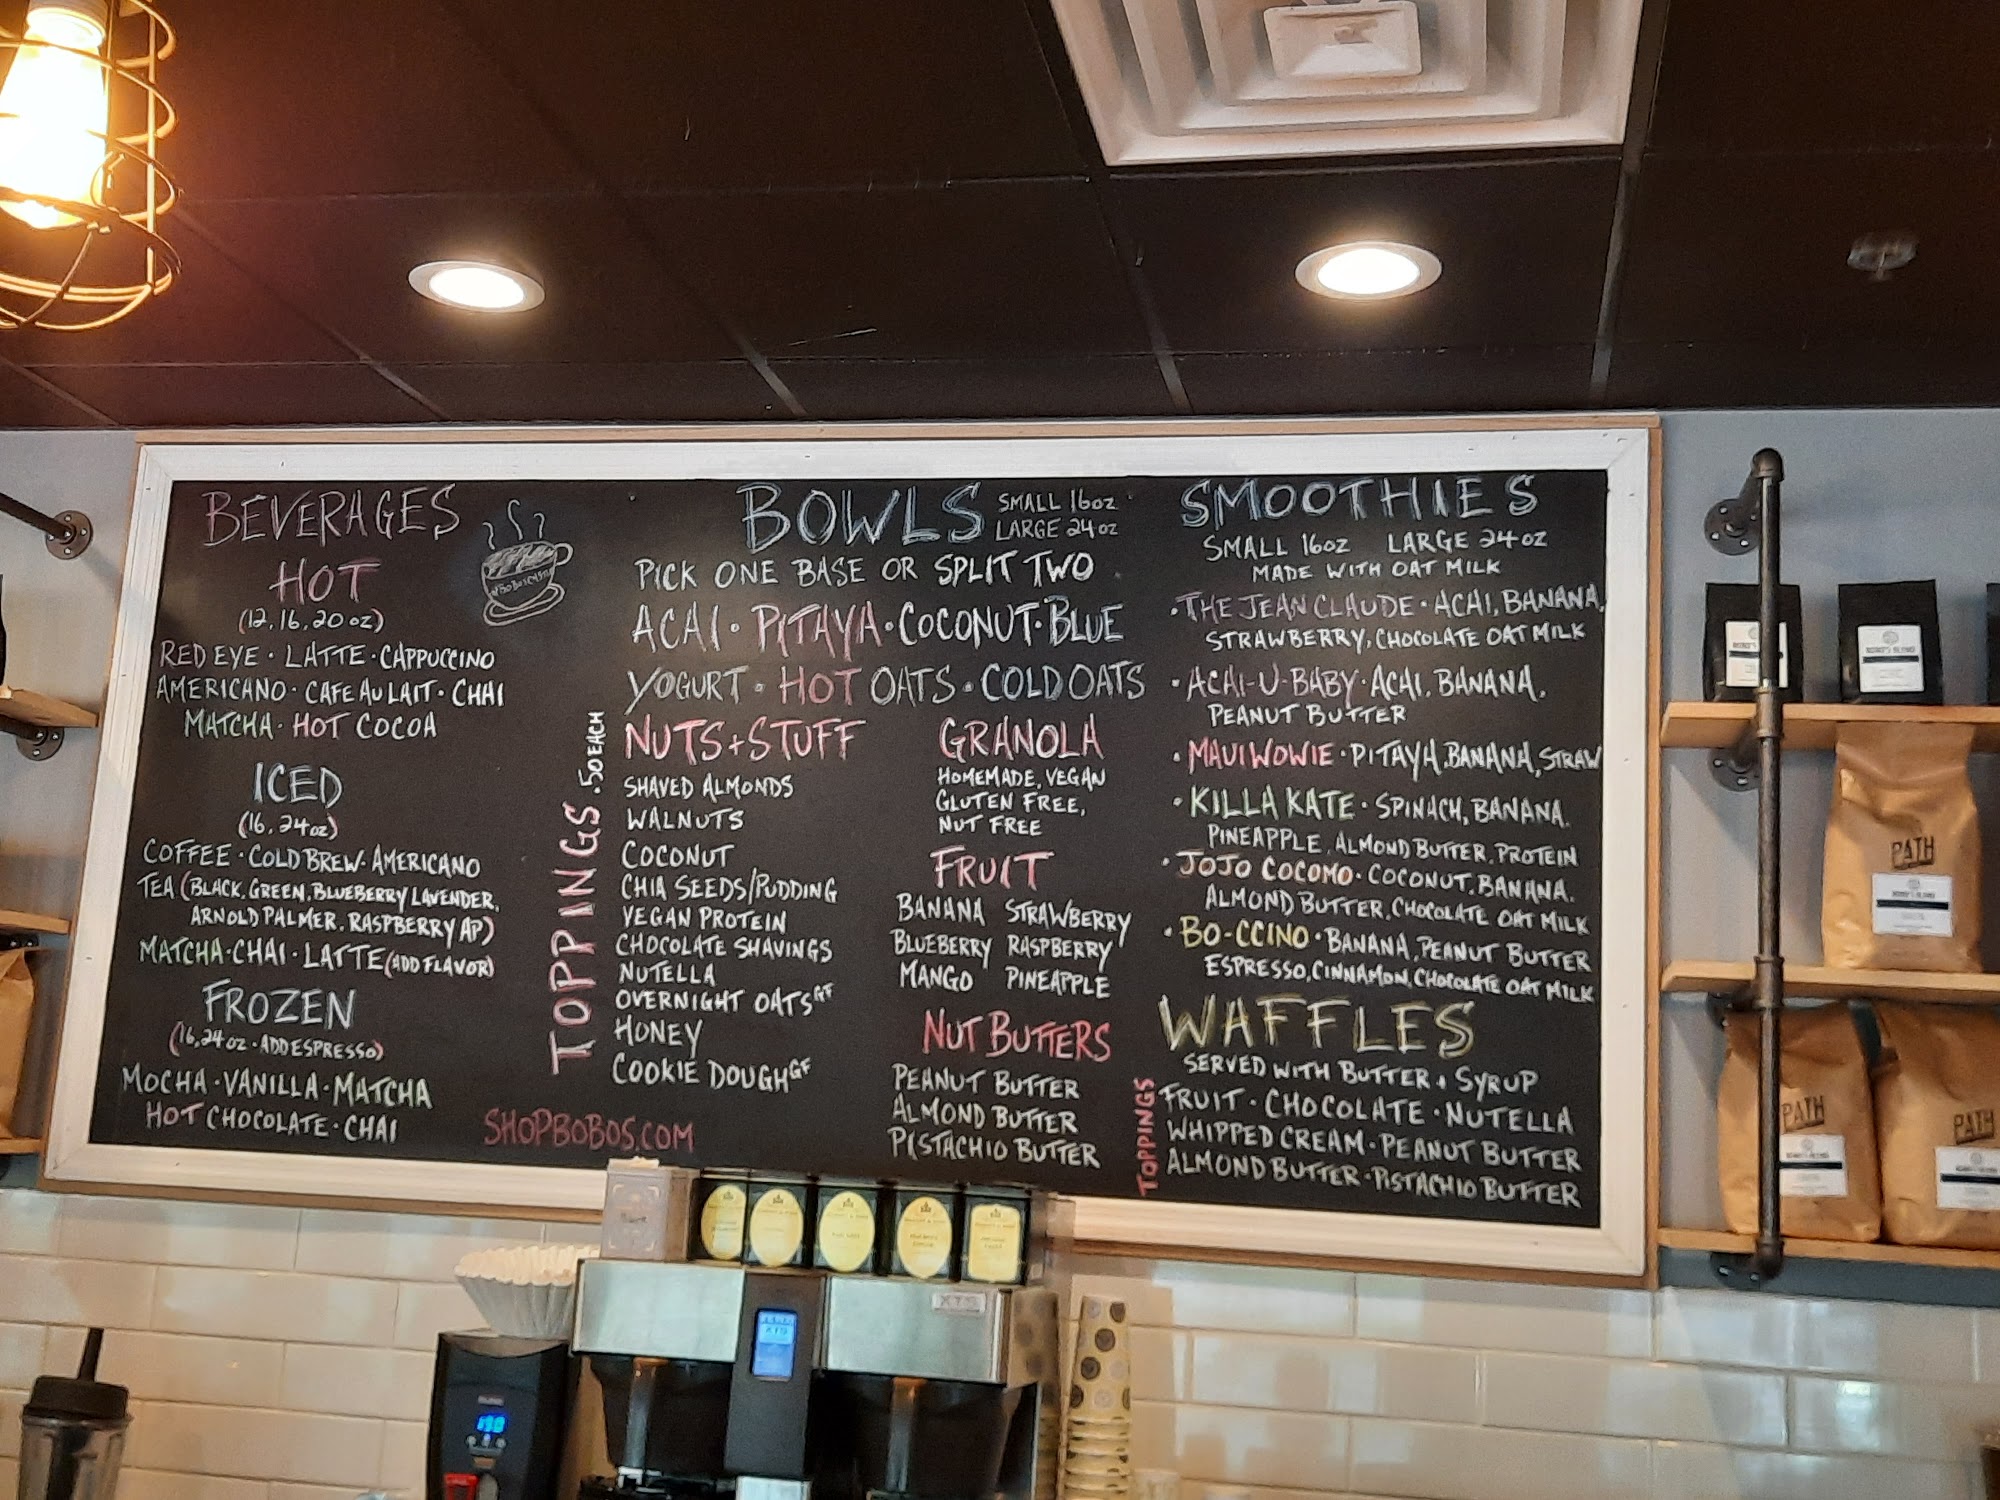 BEVERAGES
HOT
(12, 16, 20 oz)
RED EYE · LATTE · CAPPUCCINO
AMERICANO · CAFE AU LAIT · CHAI
MATCHA · HOT COCOA
ICED
(16, 24oz)
COFFEE · COLD BREW · AMERICANO
TEA (BLACK, GREEN, BLUEBERRY LAVENDER,
ARNOLD PALMER, RASPBERRY AP)
MATCHA · CHAI · LATTE (ADD FLAVOR)
FROZEN
(16, 24 oz · ADD ESPRESSO)
MOCHA · VANILLA · MATCHA
HOT CHOCOLATE · CHAI
SHOPBOBOS.COM
BOWLS
SMALL 16oz
LARGE 24 oz
PICK ONE BASE OR SPLIT TWO
ACAI · PITAYA · COCONUT · BLUE
YOGURT · HOT OATS · COLD OATS
TOPPINGS .50 EACH
NUTS + STUFF
SHAVED ALMONDS
WALNUTS
COCONUT
CHIA SEEDS/PUDDING
VEGAN PROTEIN
CHOCOLATE SHAVINGS
NUTELLA
OVERNIGHT OATS GF
HONEY
COOKIE DOUGH GF
GRANOLA
HOMEMADE, VEGAN
GLUTEN FREE,
NUT FREE
FRUIT
BANANA STRAWBERRY
BLUEBERRY RASPBERRY
MANGO PINEAPPLE
NUT BUTTERS
PEANUT BUTTER
ALMOND BUTTER
PISTACHIO BUTTER
SMOOTHIES
SMALL 16oz LARGE 24 oz
MADE WITH OAT MILK
· THE JEAN CLAUDE · ACAI, BANANA,
STRAWBERRY, CHOCOLATE OAT MILK
· ACAI-U-BABY · ACAI, BANANA,
PEANUT BUTTER
· MAUI WOWIE · PITAYA, BANANA, STRAW
· KILLA KATE · SPINACH, BANANA,
PINEAPPLE, ALMOND BUTTER, PROTEIN
· JOJO COCOMO · COCONUT, BANANA,
ALMOND BUTTER, CHOCOLATE OAT MILK
· BO-CCINO · BANANA, PEANUT BUTTER
ESPRESSO, CINNAMON, CHOCOLATE OAT MILK
WAFFLES
SERVED WITH BUTTER + SYRUP
TOPPINGS
FRUIT · CHOCOLATE · NUTELLA
WHIPPED CREAM · PEANUT BUTTER
ALMOND BUTTER · PISTACHIO BUTTER
BOBO'S BLEND
PATH
PATH
PATH
XTS